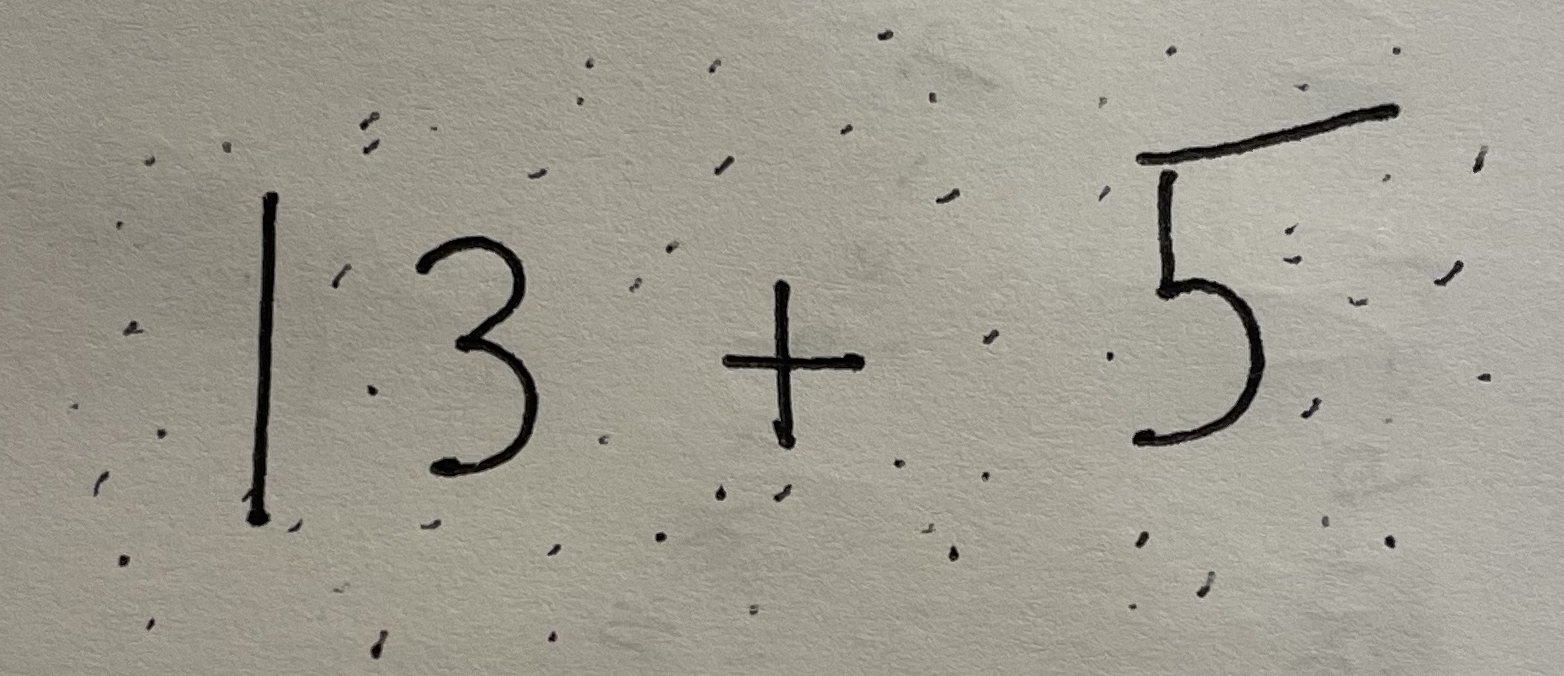 13 + 5